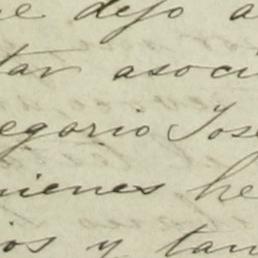 ue dejo a
tar asoci
egorio Jose
uienes he
ios y tan